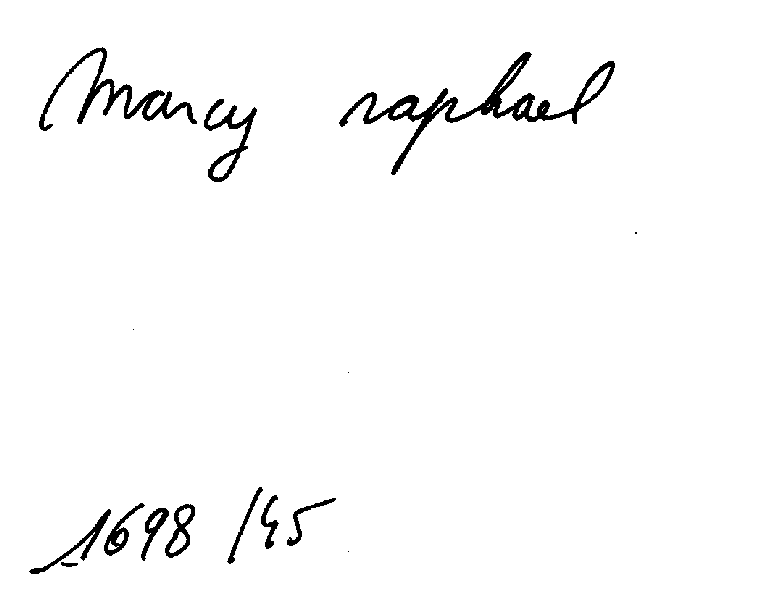 Marcy raphael
1698 /45